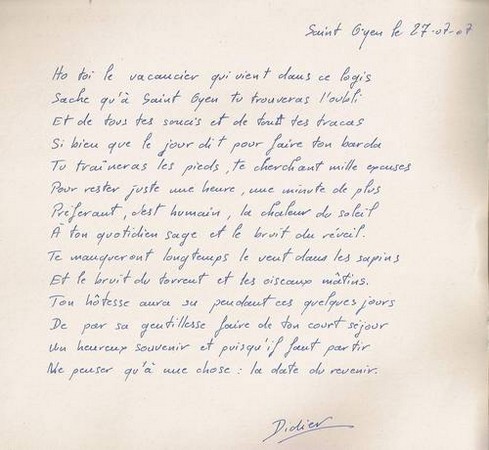 Saint Gyen le 27-07-07
Ho toi le vacancier qui vient dans ce logis
Sache qu'à Saint Gyen tu trouveras l'oubli
Et de tous tes soucis et de tout tes tracas
Si bien que le jour dit pour faire ton barda
Tu traîneras les pieds, te cherchant mille excuses
Pour rester juste une heure, une minute de plus
Préferant, c'est humain, la chaleur du soleil
A ton quotidien sage et le bruit du réveil.
Te manqueront longtemps le vent dans les sapins
Et le bruit du torrent et les oiseaux mâtins.
Ton hôtesse aura su pendant ces quelques jours
De par sa gentillesse faire de ton court séjour
Un heureux souvenir et puisqu'il faut partir
Ne penser qu'à une chose : la date du revenir.
Didier